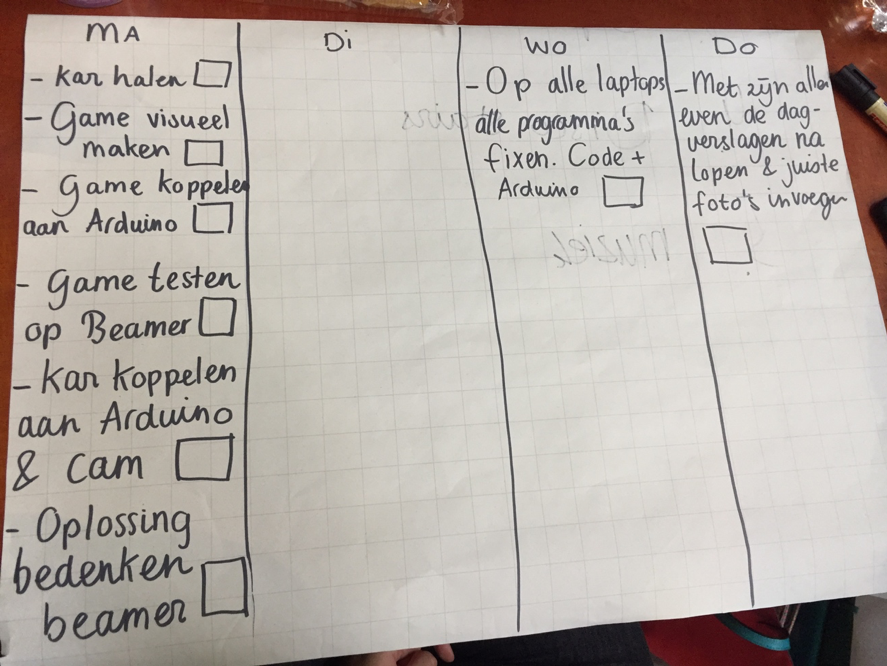 MA
- Kar halen
- Game visueel
maken
- Game koppelen
aan Arduino
- Game testen
op Beamer
- Kar koppelen
aan Arduino
& Cam
- Oplossing
bedenken
beamer
Di
WO
- Op alle laptops
alle programma's
fixen. Code +
Arduino
Do
- Met zijn allen
even de dag-
verslagen na
lopen & juiste
foto's invoegen
muziek